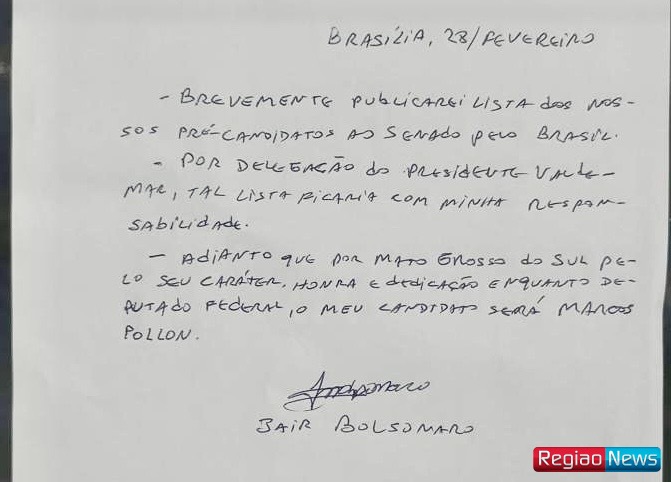 BRASÍLIA, 28/FEVEREIRO
- BREVEMENTE PUBLICAREI LISTA dos NOS-
SOS PRÉ-CANDIDATOS AO SENADO pelo BRASIL.
- POR DELEGAÇÃO do PRESIDENTE VALDE-
MAR, TAL LISTA FICARIA COM MINHA RESPON-
SABILIDADE.
- ADIANTO que POR MATO GROSSO do SUL PE-
LO SEU CARÁTER, HONRA E dedicAÇÃO ENQUANTO DE-
PUTADO FEDERAL, O MEU CANDIDATO SERÁ MARCOS
POLLON.
JAIR BOLSONARO
Regiao News